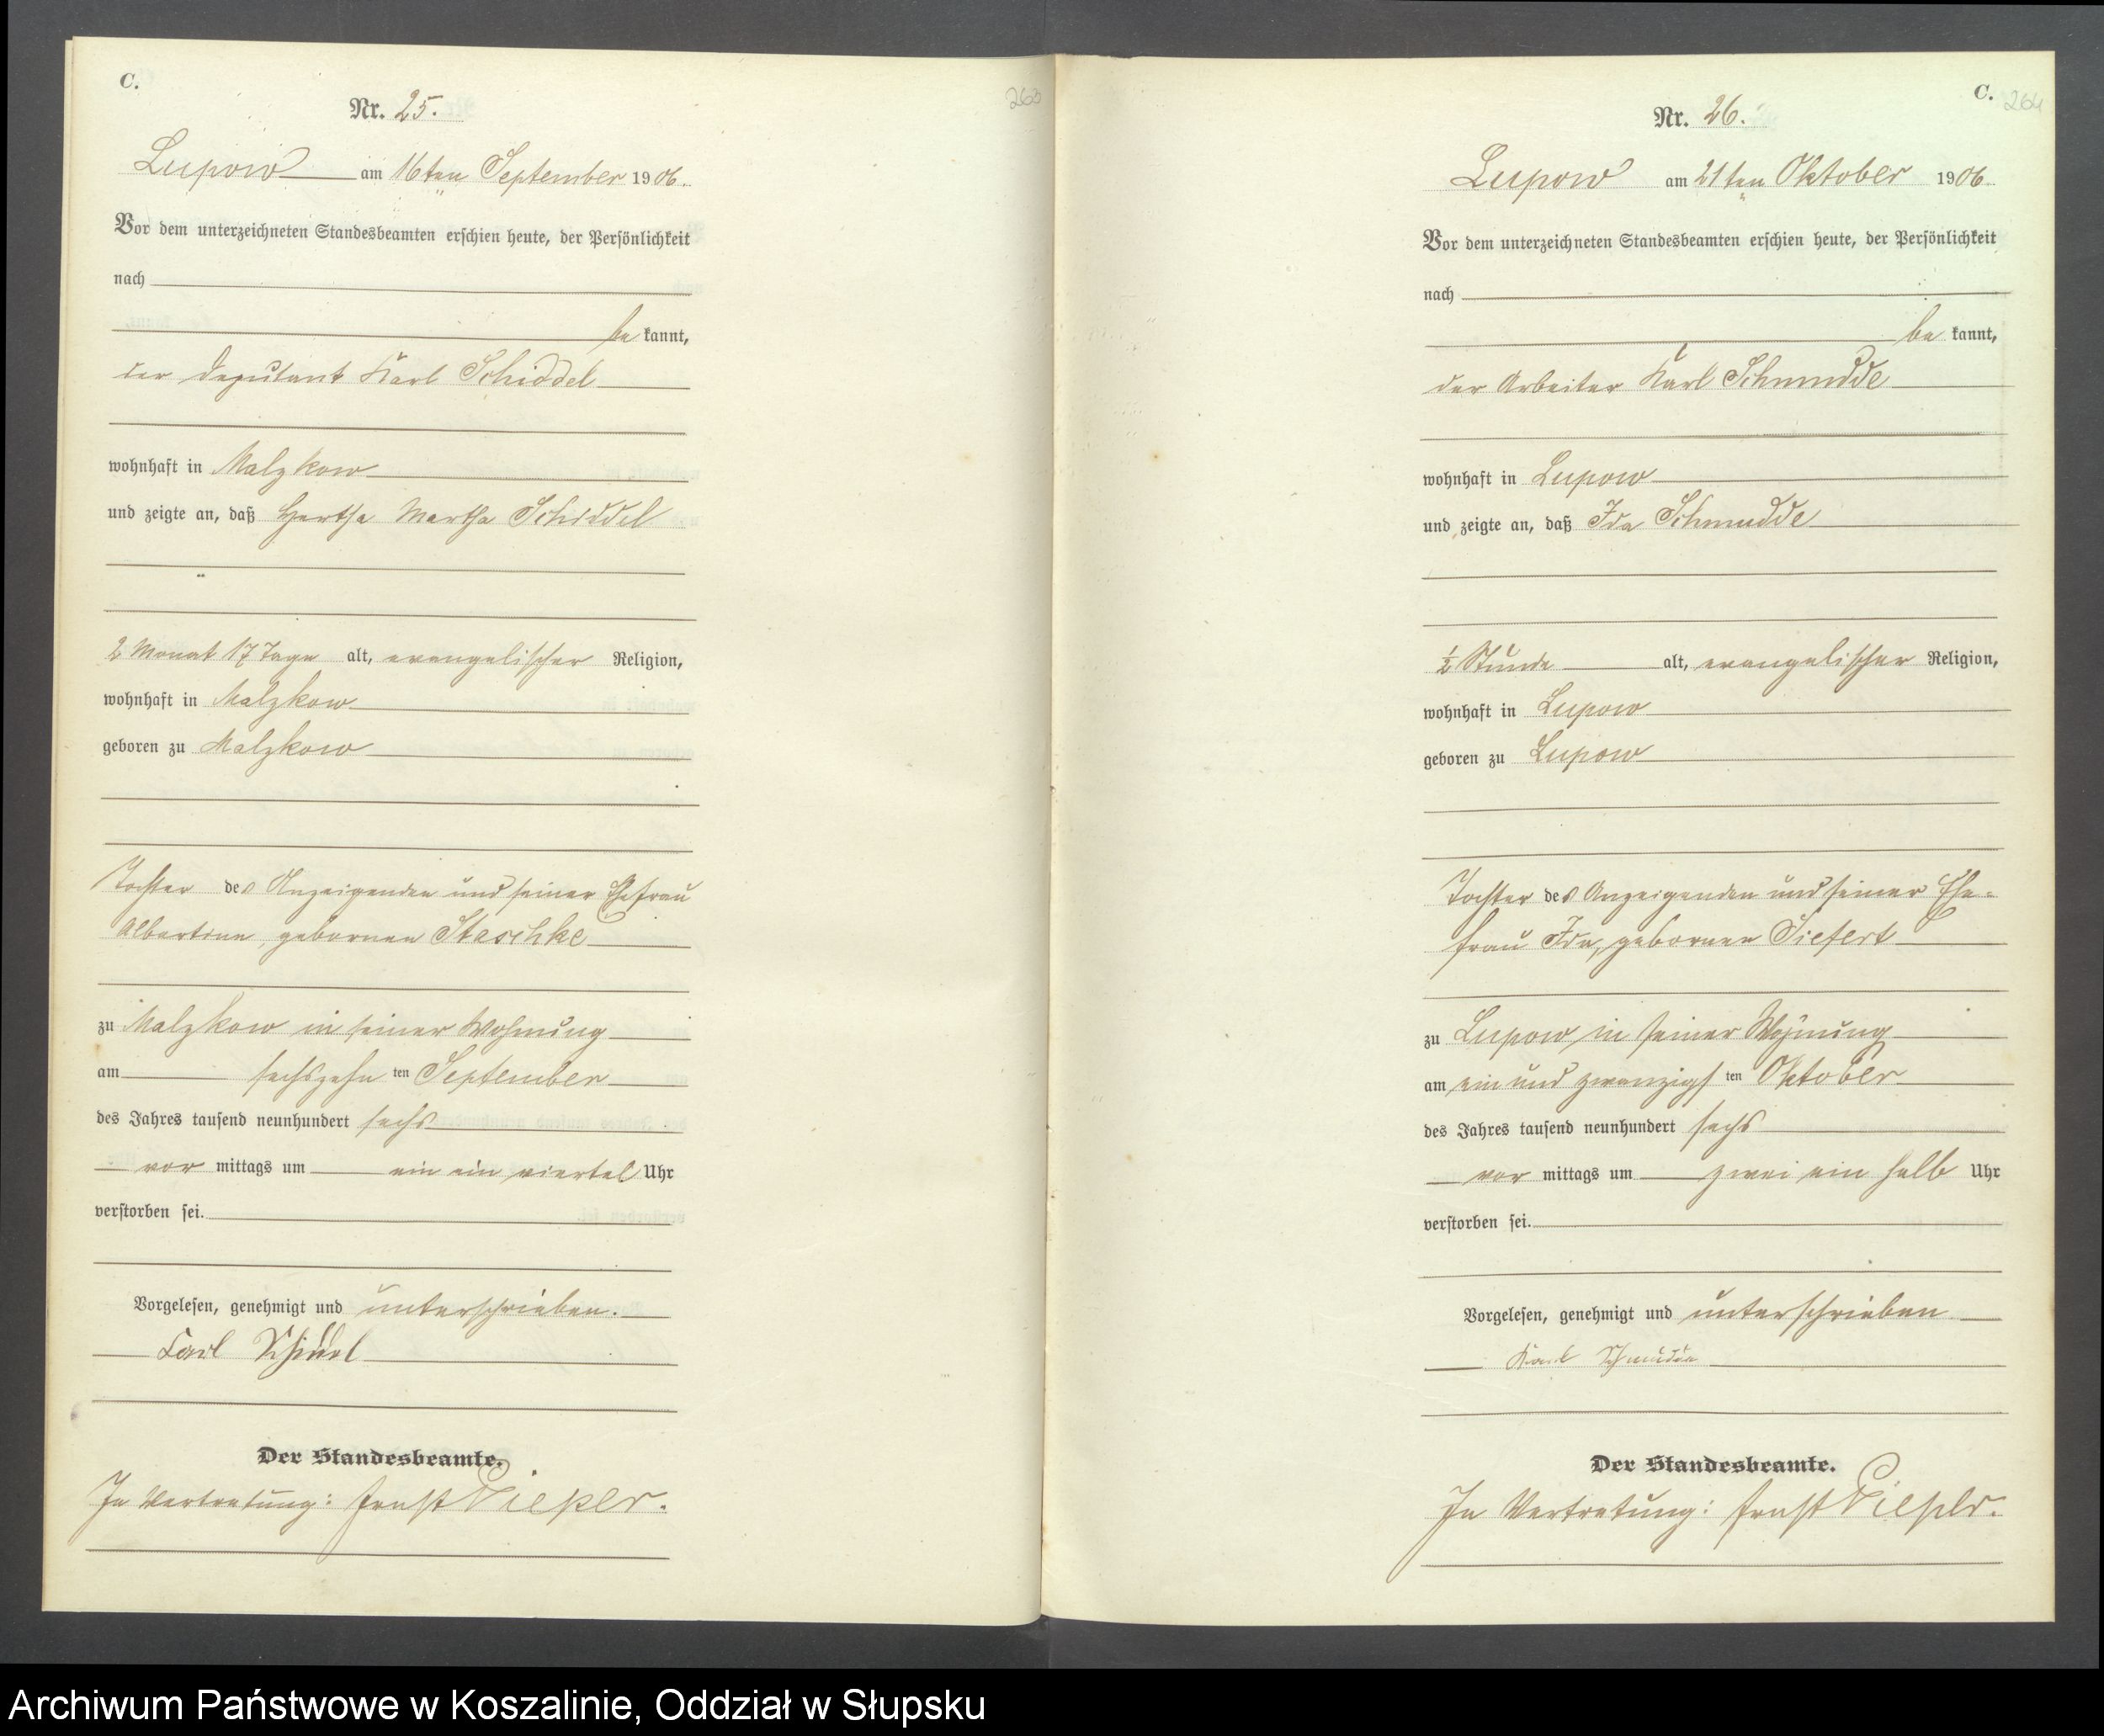 C.
Nr. 25.
263
Lupow am 16ten September 1906.
Vor dem unterzeichneten Standesbeamten erschien heute, der Persönlichkeit
nach
be kannt,
der Deputant Karl Schiddel
wohnhaft in Malzkow
und zeigte an, daß Hertha Martha Schiddel
2 Monat 17 Tage alt, evangelischer Religion,
wohnhaft in Malzkow
geboren zu Malzkow
Tochter des Anzeigenden und seiner Ehefrau
Albertine, geborenen Staschke
zu Malzkow in seiner Wohnung
am sechszehn ten September
des Jahres tausend neunhundert sechs
vor mittags um ein ein viertel Uhr
verstorben sei.
Vorgelesen, genehmigt und unterschrieben.
Karl Schiddel
Der Standesbeamte.
In Vertretung: Ernst Pieper.
C.
264
Nr. 26.
Lupow am 21ten Oktober 1906
Vor dem unterzeichneten Standesbeamten erschien heute, der Persönlichkeit
nach
be kannt,
der Arbeiter Karl Schmudde
wohnhaft in Lupow
und zeigte an, daß Ida Schmudde
½ Stunde alt, evangelischer Religion,
wohnhaft in Lupow
geboren zu Lupow
Tochter des Anzeigenden und seiner Ehe-
frau Ida, geborenen Siefert
zu Lupow in seiner Wohnung
am ein und zwanzigs ten Oktober
des Jahres tausend neunhundert sechs
vor mittags um zwei ein halb Uhr
verstorben sei.
Vorgelesen, genehmigt und unterschrieben
Karl Schmudde
Der Standesbeamte.
In Vertretung: Ernst Pieper.
Archiwum Państwowe w Koszalinie, Oddział w Słupsku